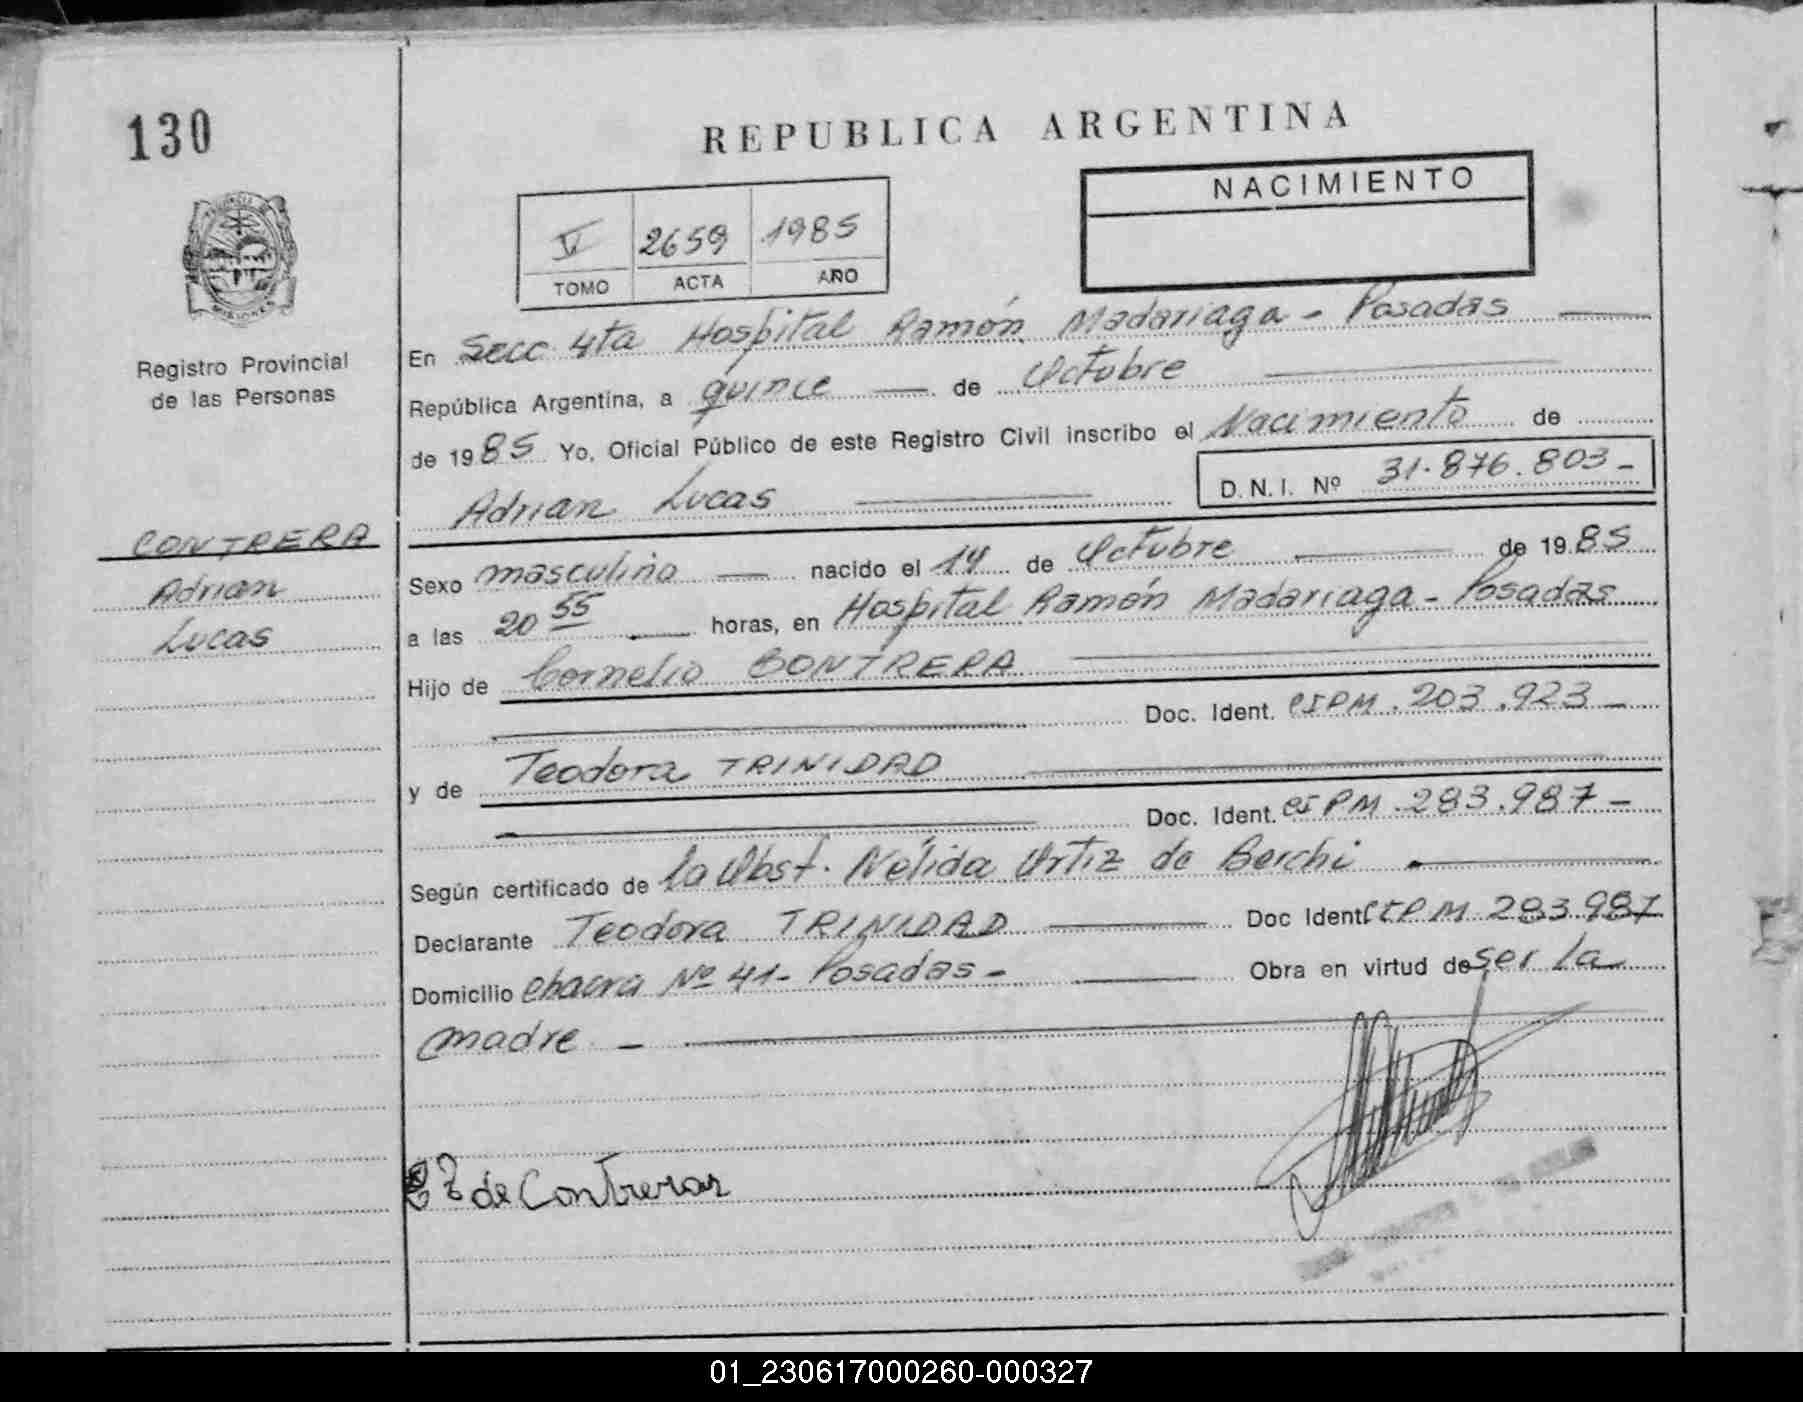 130
REPUBLICA ARGENTINA
NACIMIENTO
V 2659 1985
TOMO ACTA AÑO
MISIONES
Registro Provincial
de las Personas
En Secc 4ta Hospital Ramón Madariaga - Posadas
República Argentina, a quince de Octubre
de 1985 Yo, Oficial Público de este Registro Civil inscribo el Nacimiento de
Adrian Lucas D.N.I. Nº 31.876.803-
CONTRERA
Adrian
Lucas
Sexo masculino nacido el 14 de Octubre de 1985
a las 20 55 horas, en Hospital Ramón Madariaga - Posadas
Hijo de Cornelio CONTRERA
Doc. Ident. CIPM. 203.923-
y de Teodora TRINIDAD
Doc. Ident. CIPM. 283.987-
Según certificado de la Obst. Nélida Ortiz de Berchi
Declarante Teodora TRINIDAD Doc Ident CIPM 283.987
Domicilio chacra Nº 41- Posadas- Obra en virtud de ser la
madre -
de Contreras
01_230617000260-000327